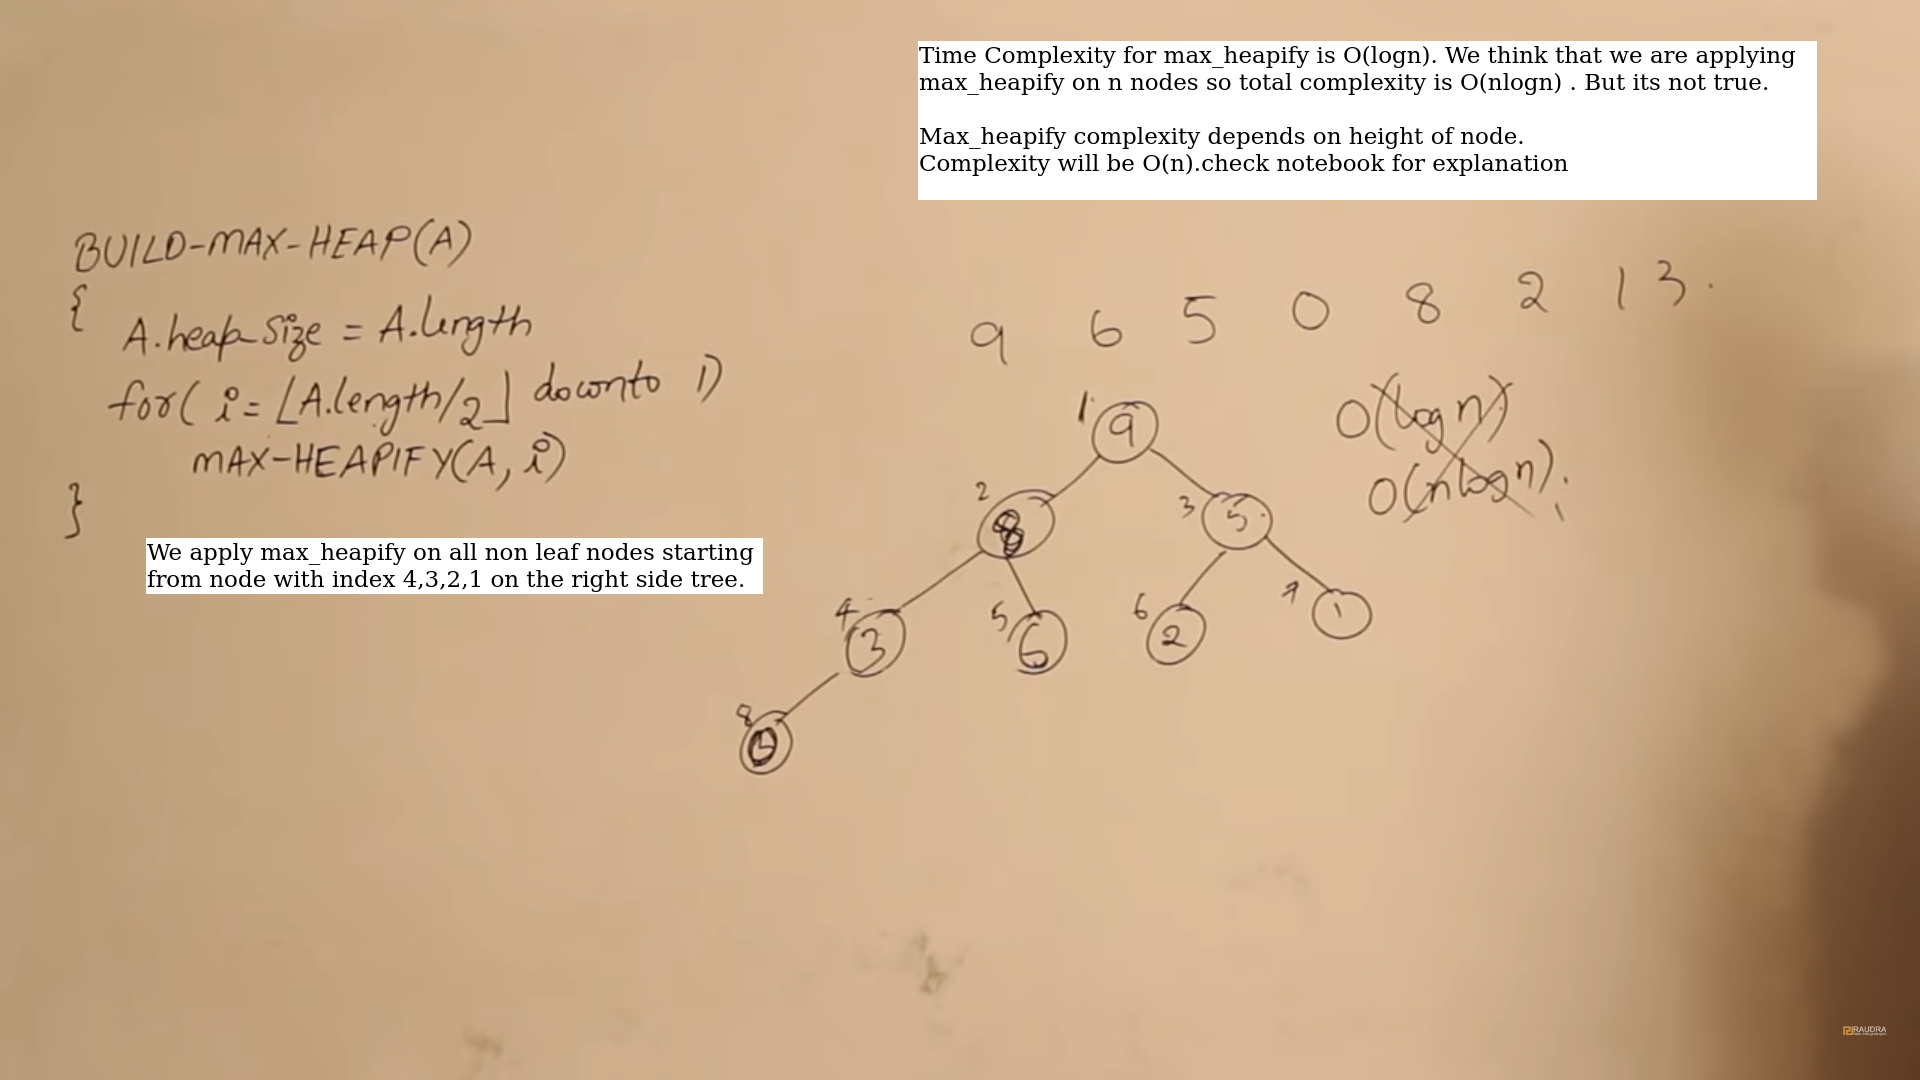 Time Complexity for max_heapify is O(logn). We think that we are applying
max_heapify on n nodes so total complexity is O(nlogn) . But its not true.
Max_heapify complexity depends on height of node.
Complexity will be O(n).check notebook for explanation
BUILD-MAX-HEAP(A)
{
A.heap-size = A.length
for( i= ⌊A.length/2⌋ downto 1)
MAX-HEAPIFY(A, i)
}
We apply max_heapify on all non leaf nodes starting
from node with index 4,3,2,1 on the right side tree.
9 6 5 0 8 2 1 3.
O(logn)
O(nlogn).
1 9
2 8 3 5
4 3 5 6 6 2 7 1
8 0
RAUDRA